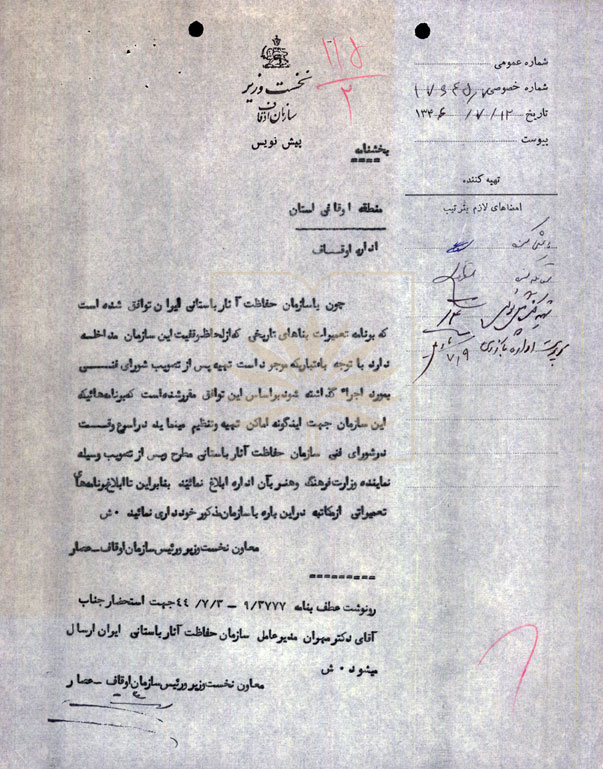 نخست وزیر
سازمان اوقاف
پیش نویس
۱۱۵
۲
شماره عمومی
شماره خصوصی
تاریخ ۱۲ / ۷ / ۱۳۴۶
پیوست
تهیه کننده
امضاهای لازم بترتیب
بخشنامه
منطقه اوقافی استان
اداره اوقاف
چون با سازمان حفاظت آثار باستانی ایران توافق شده است
که برنامه تعمیرات بناهای تاریخی که از لحاظ وقفیت این سازمان مداخله
دارد با توجه باعتباریکه موجود است تهیه پس از تصویب شورای فنی
بمورد اجراء گذاشته شود بر اساس این توافق مقرر شده است که برنامه هائیکه
این سازمان جهت اینگونه اماکن تهیه و تنظیم مینماید در اسرع وقت
در شورای فنی سازمان حفاظت آثار باستانی مطرح و پس از تصویب وسیله
نماینده وزارت فرهنگ و هنر بآن اداره ابلاغ نمائید بنابراین تا ابلاغ برنامه های
تعمیراتی از مکاتبه در این باره با سازمان مذکور خودداری نمائید ۰ ش
معاون نخست وزیر و رئیس سازمان اوقاف ـ عصار
رونوشت عطف بنامه ۹/۳۷۷۷ – ۴۴/۷/۳ جهت استحضار جناب
آقای دکتر مهران مدیر عامل سازمان حفاظت آثار باستانی ایران ارسال
میشود ۰ ش
معاون نخست وزیر و رئیس سازمان اوقاف ـ عصار